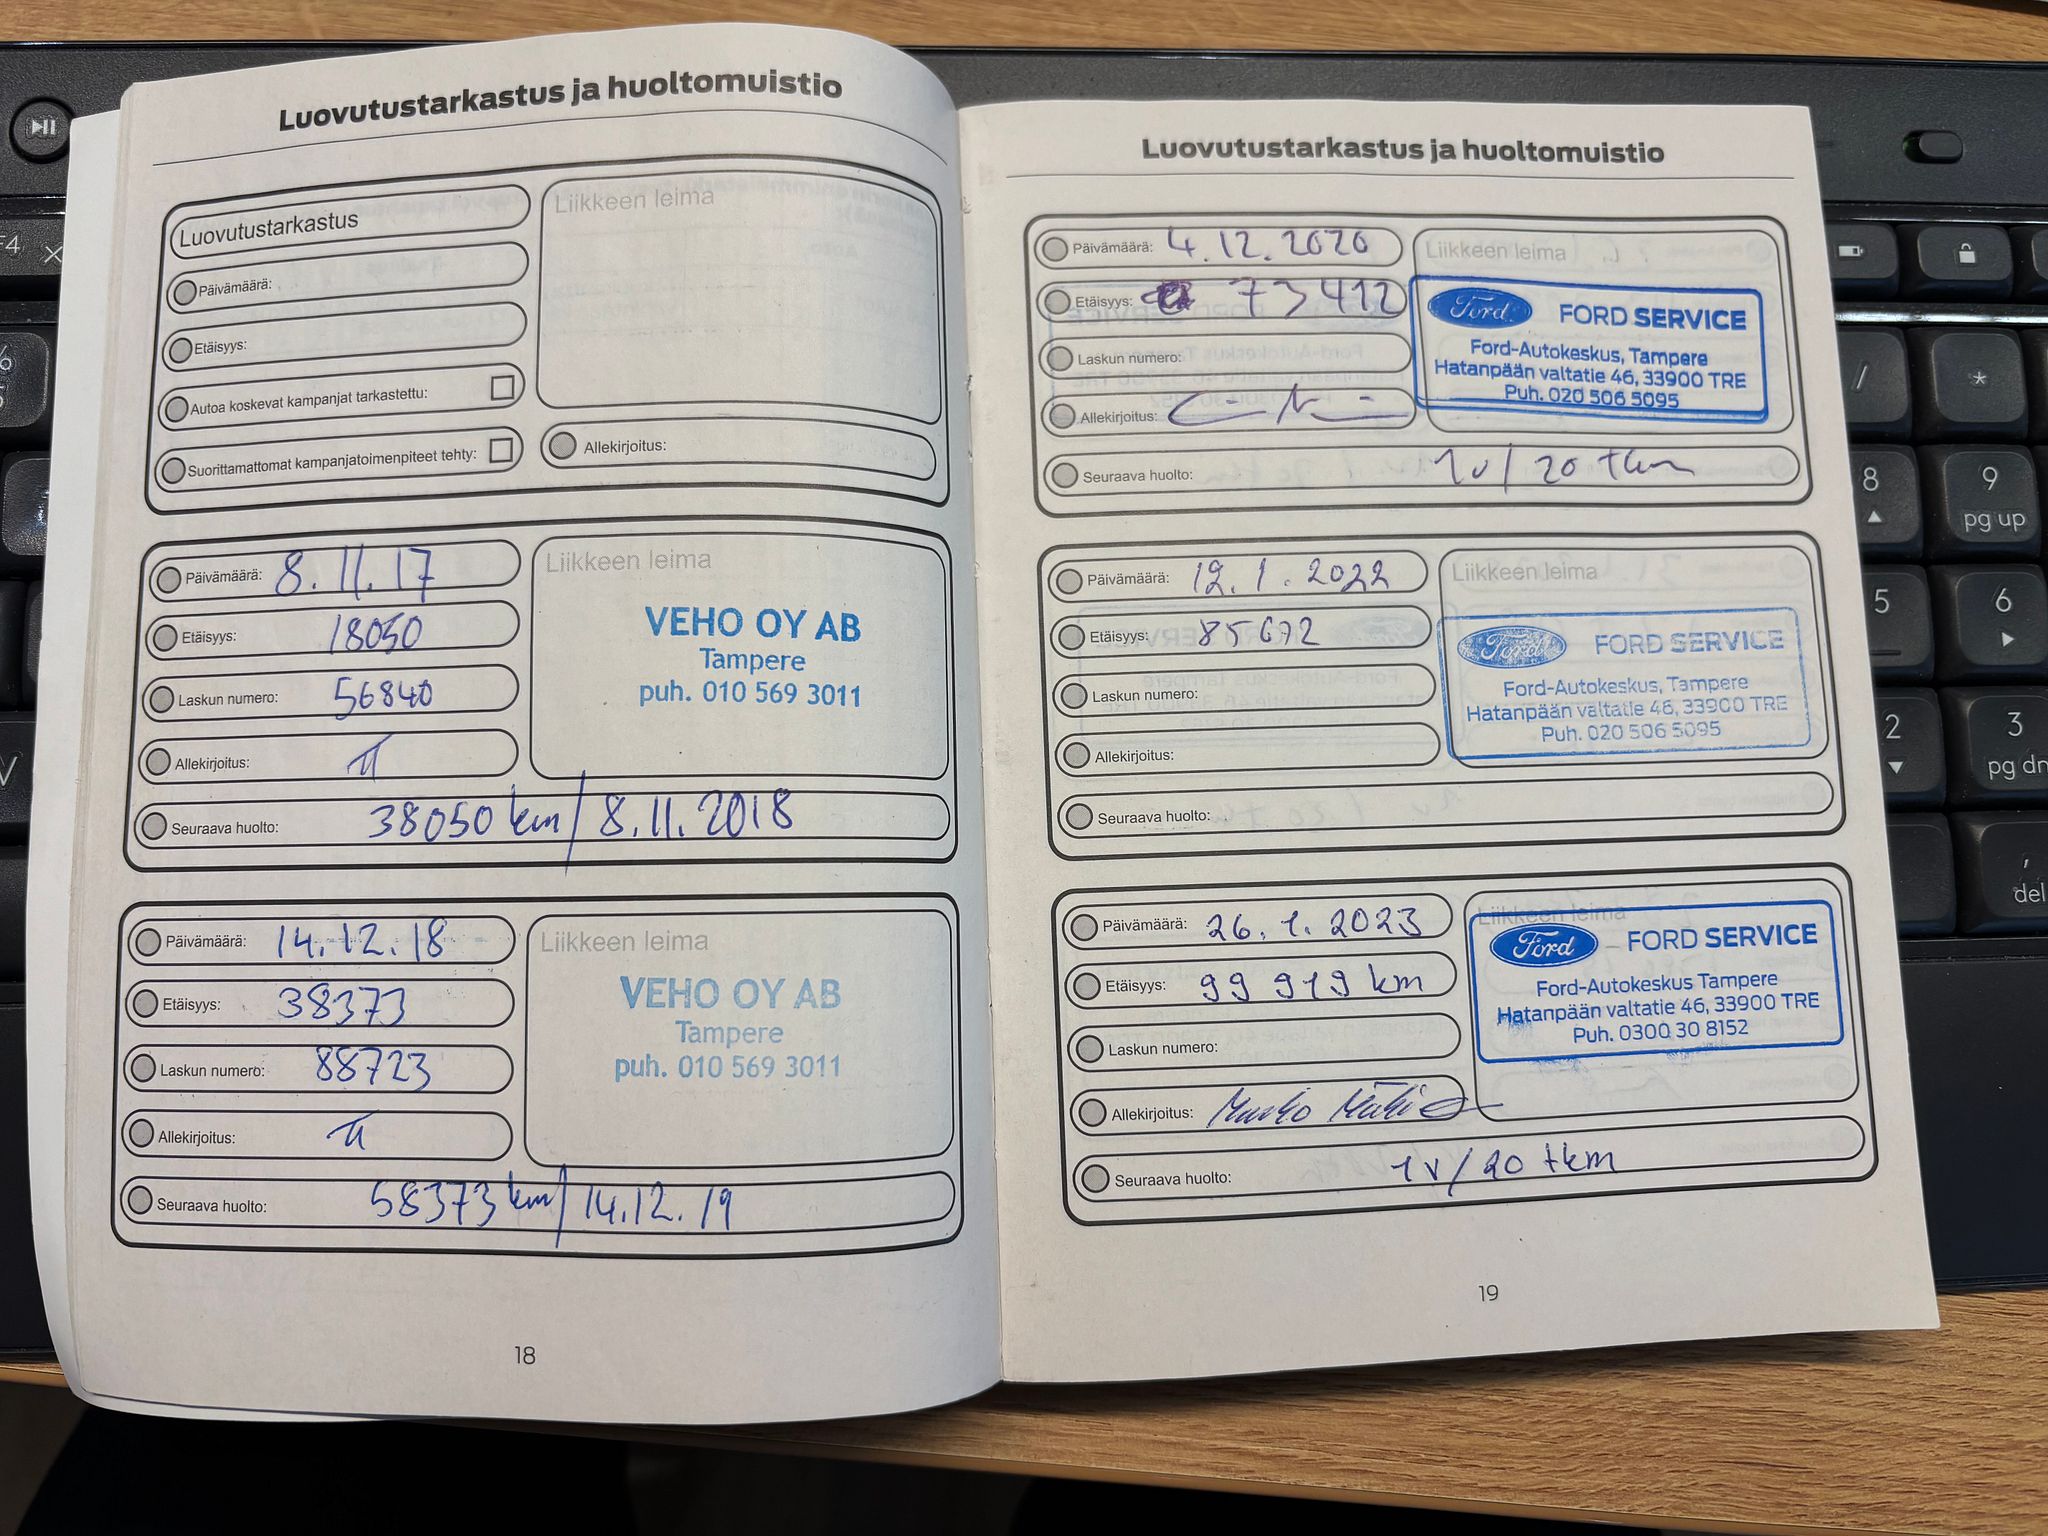 Luovutustarkastus ja huoltomuistio
Luovutustarkastus
Liikkeen leima
Päivämäärä:
Etäisyys:
Autoa koskevat kampanjat tarkastettu:
Suorittamattomat kampanjatoimenpiteet tehty:
Allekirjoitus:
Päivämäärä: 8.11.17
Etäisyys: 18050
Laskun numero: 56840
Allekirjoitus:
Liikkeen leima
VEHO OY AB
Tampere
puh. 010 569 3011
Seuraava huolto: 38050 km / 8.11.2018
Päivämäärä: 14.12.18
Etäisyys: 38373
Laskun numero: 88723
Allekirjoitus:
Liikkeen leima
VEHO OY AB
Tampere
puh. 010 569 3011
Seuraava huolto: 58373 km / 14.12.19
18
Luovutustarkastus ja huoltomuistio
Päivämäärä: 4.12.2020
Etäisyys: 73412
Laskun numero:
Allekirjoitus:
Liikkeen leima
Ford FORD SERVICE
Ford-Autokeskus, Tampere
Hatanpään valtatie 46, 33900 TRE
Puh. 020 506 5095
Seuraava huolto: 1v / 20 tkm
Päivämäärä: 12.1.2022
Etäisyys: 85672
Laskun numero:
Allekirjoitus:
Liikkeen leima
Ford FORD SERVICE
Ford-Autokeskus, Tampere
Hatanpään valtatie 46, 33900 TRE
Puh. 020 506 5095
Seuraava huolto:
Päivämäärä: 26.1.2023
Etäisyys: 99 919 km
Laskun numero:
Allekirjoitus:
Liikkeen leima
Ford FORD SERVICE
Ford-Autokeskus Tampere
Hatanpään valtatie 46, 33900 TRE
Puh. 0300 30 8152
Seuraava huolto: 1v / 20 tkm
19
F4
/
*
8
9
pg up
5
6
2
3
pg dn
,
del
V